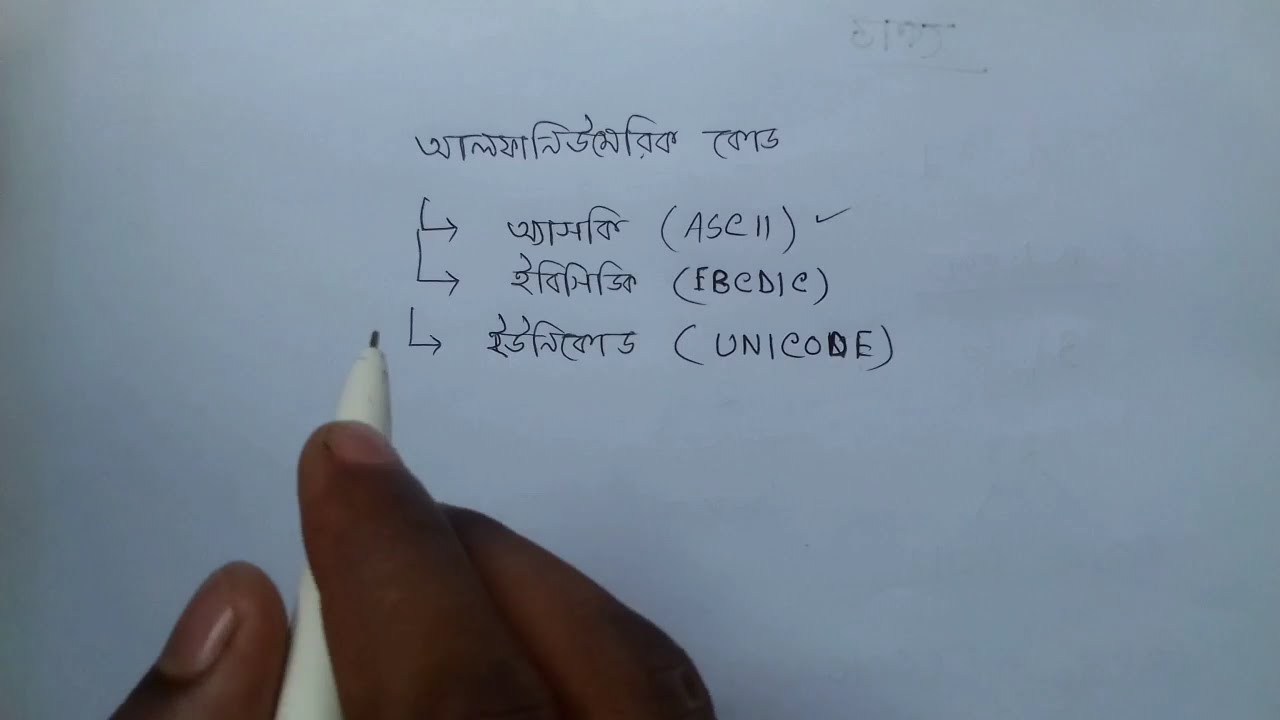 আলফানিউমেরিক কোড
অ্যাসকি (ASCII) ✓
ইবিসিডিক (EBCDIC)
ইউনিকোড (UNICODE)